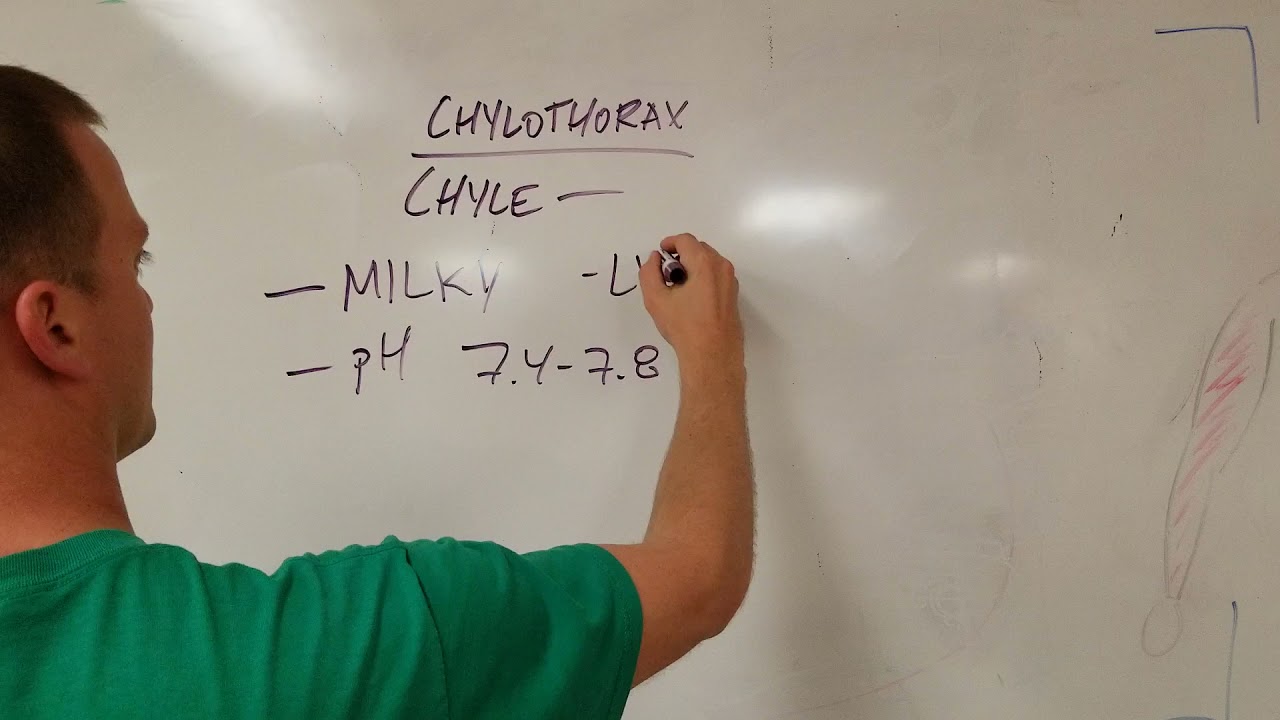 CHYLOTHORAX
CHYLE —
— MILKY
— pH 7.4-7.8